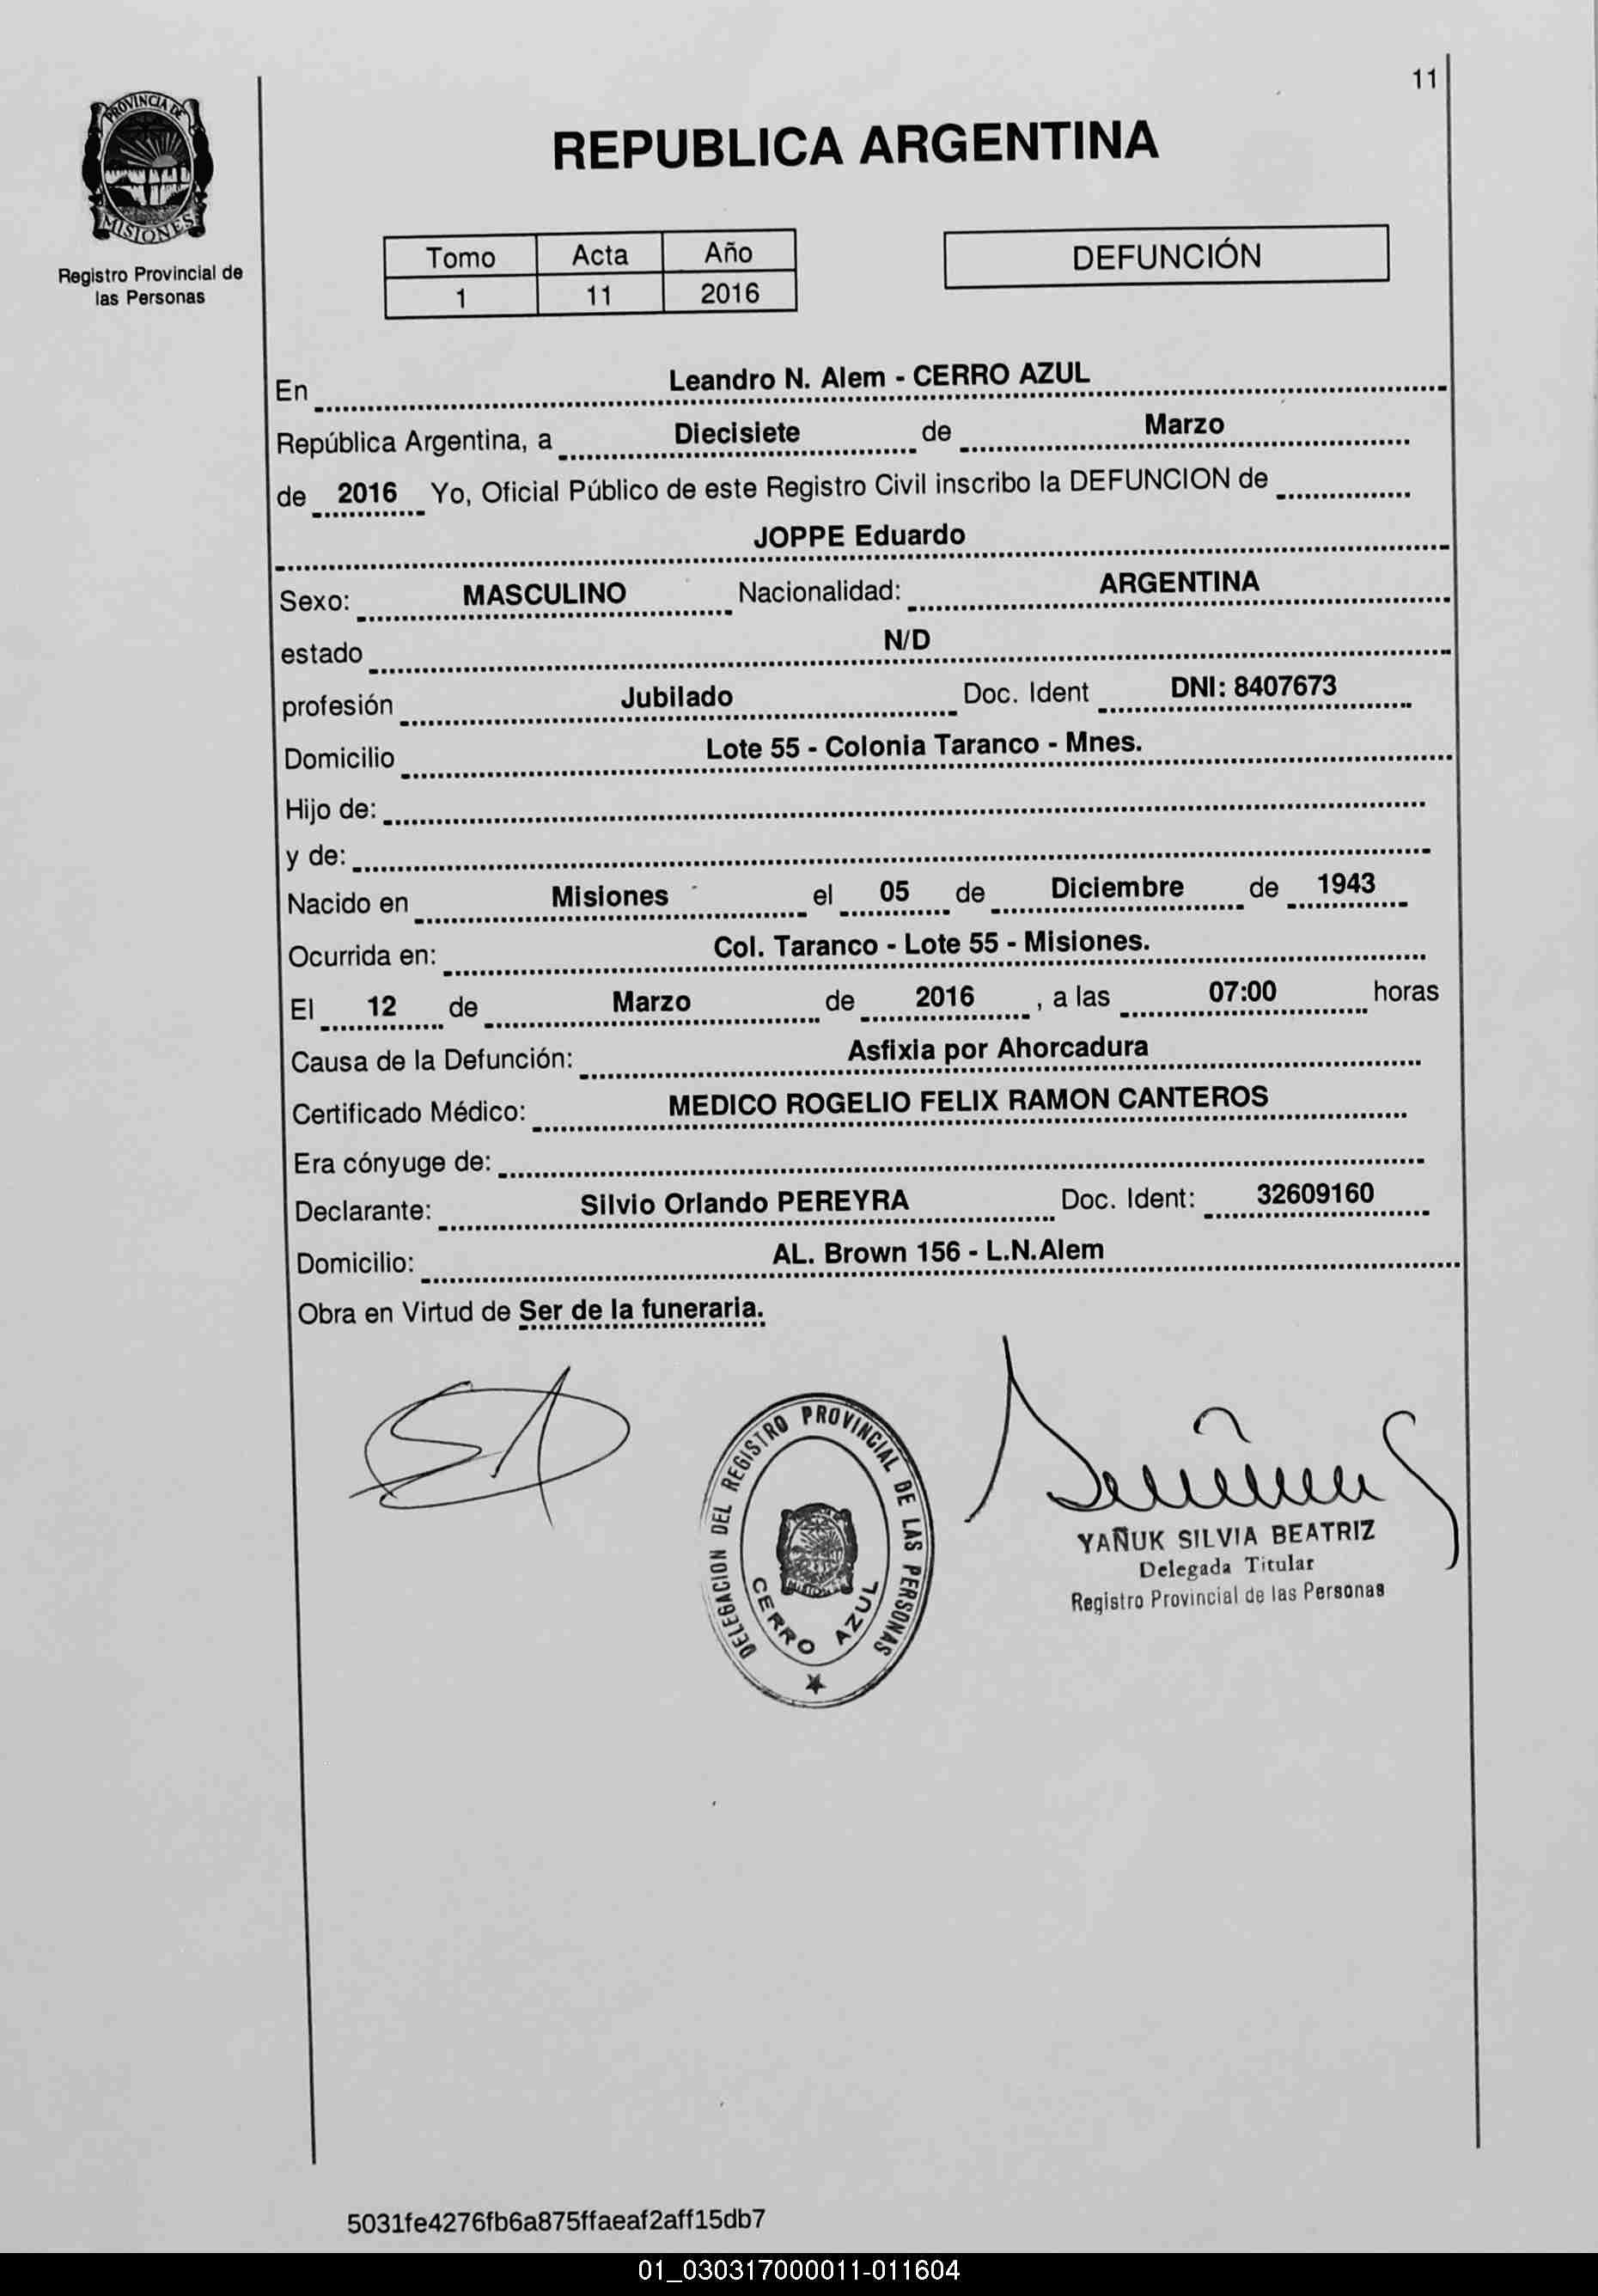 11
PROVINCIA DE
MISIONES
Registro Provincial de
las Personas
REPUBLICA ARGENTINA
Tomo Acta Año
1 11 2016
DEFUNCIÓN
En Leandro N. Alem - CERRO AZUL
República Argentina, a Diecisiete de Marzo
de 2016 Yo, Oficial Público de este Registro Civil inscribo la DEFUNCION de
JOPPE Eduardo
Sexo: MASCULINO Nacionalidad: ARGENTINA
estado N/D
profesión Jubilado Doc. Ident DNI: 8407673
Domicilio Lote 55 - Colonia Taranco - Mnes.
Hijo de:
y de:
Nacido en Misiones el 05 de Diciembre de 1943
Ocurrida en: Col. Taranco - Lote 55 - Misiones.
El 12 de Marzo de 2016 , a las 07:00 horas
Causa de la Defunción: Asfixia por Ahorcadura
Certificado Médico: MEDICO ROGELIO FELIX RAMON CANTEROS
Era cónyuge de:
Declarante: Silvio Orlando PEREYRA Doc. Ident: 32609160
Domicilio: AL. Brown 156 - L.N.Alem
Obra en Virtud de Ser de la funeraria.
DELEGACION DEL REGISTRO PROVINCIAL DE LAS PERSONAS
MISIONES
CERRO AZUL
YAÑUK SILVIA BEATRIZ
Delegada Titular
Registro Provincial de las Personas
5031fe4276fb6a875ffaeaf2aff15db7
01_030317000011-011604